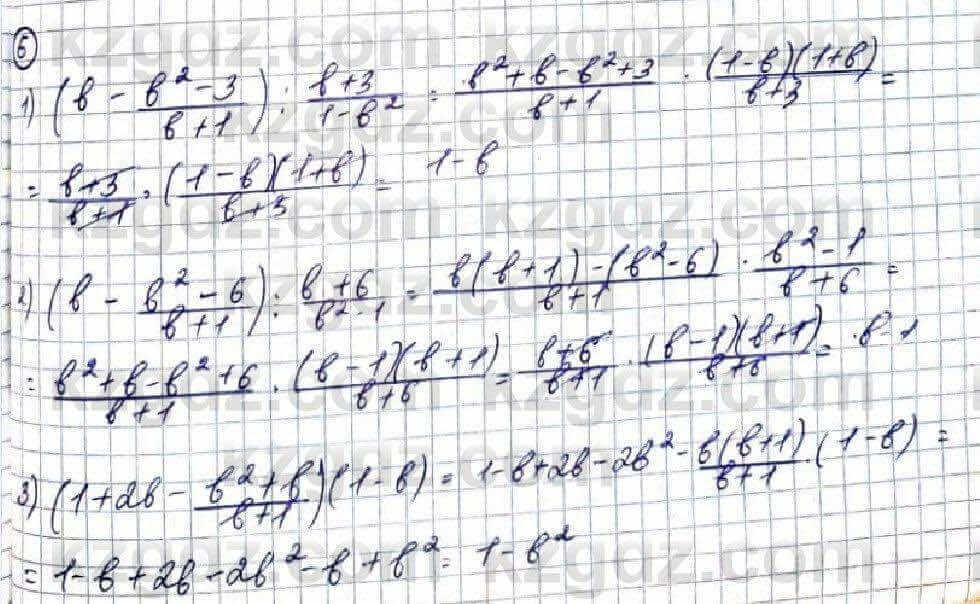 6
1) (b - \frac{b^2-3}{b+1}) : \frac{b+3}{1-b^2} = \frac{b^2+b-b^2+3}{b+1} \cdot \frac{(1-b)(1+b)}{b+3} =
= \frac{b+3}{b+1} \cdot \frac{(1-b)(1+b)}{b+3} = 1-b
2) (b - \frac{b^2-6}{b+1}) : \frac{b+6}{b^2-1} = \frac{b(b+1)-(b^2-6)}{b+1} \cdot \frac{b^2-1}{b+6} =
= \frac{b^2+b-b^2+6}{b+1} \cdot \frac{(b-1)(b+1)}{b+6} = \frac{b+6}{b+1} \cdot \frac{(b-1)(b+1)}{b+6} = b-1
3) (1+2b - \frac{b^2+b}{b+1})(1-b) = 1-b+2b-2b^2 - \frac{b(b+1)}{b+1} \cdot (1-b) =
= 1-b+2b-2b^2-b+b^2 = 1-b^2
kzgdz.com